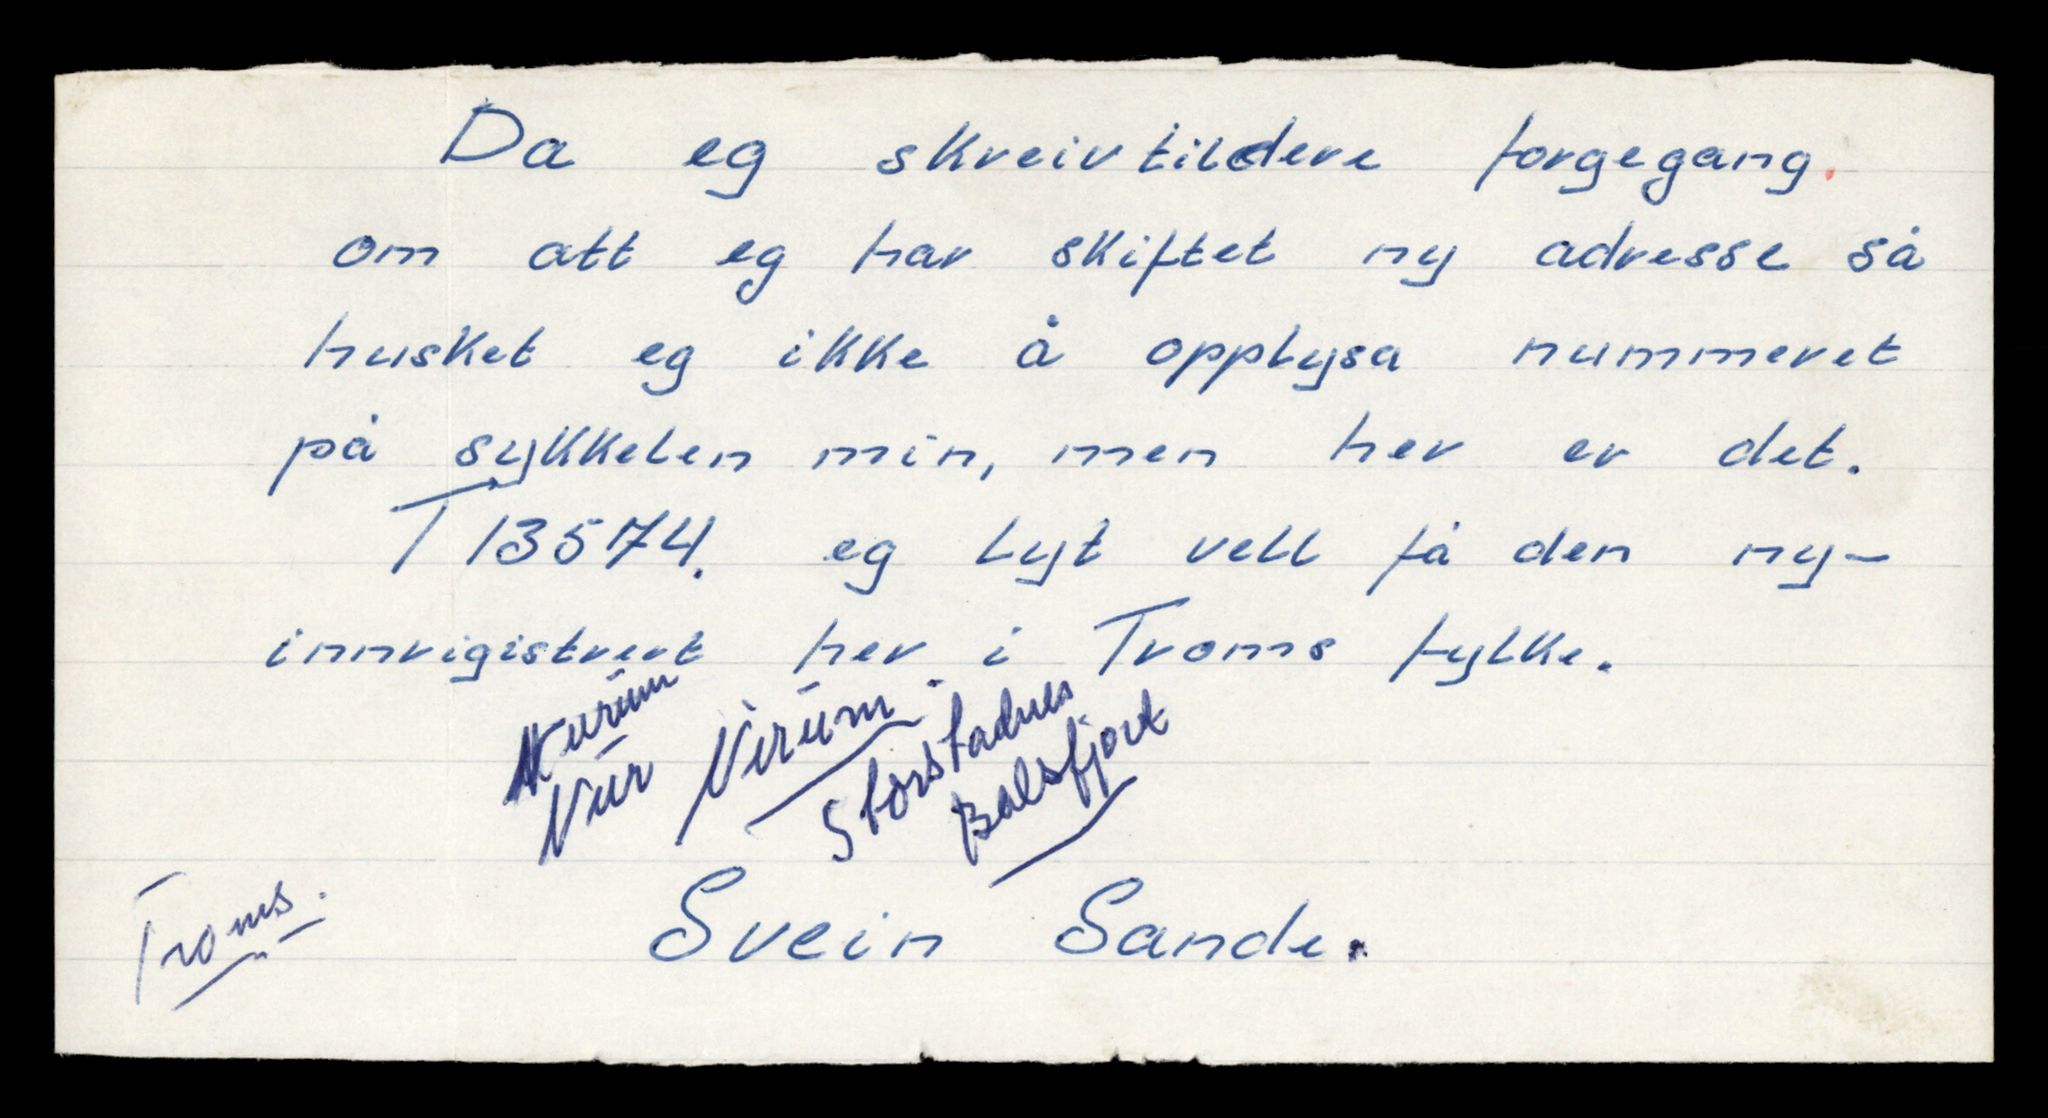 Da eg skreiv til dere forgegang.
om att eg har skiftet ny adresse så
husket eg ikke å opplysa nummeret
på sykkelen min, men her er det.
T 13574. eg lyt vell få den ny-
innrigistrert her i Troms fylke.
Storstadnes
Balsfjort
Svein Sande.
Troms.